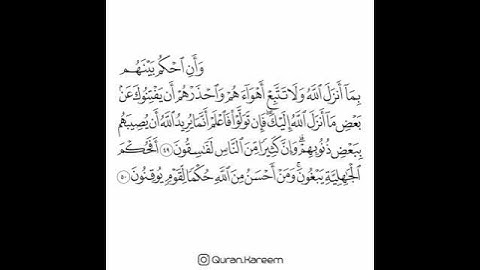 وَأَنِ ٱحْكُم بَيْنَهُم
بِمَآ أَنزَلَ ٱللَّهُ وَلَا تَتَّبِعْ أَهْوَآءَهُمْ وَٱحْذَرْهُمْ أَن يَفْتِنُوكَ عَنۢ
بَعْضِ مَآ أَنزَلَ ٱللَّهُ إِلَيْكَ ۖ فَإِن تَوَلَّوْا۟ فَٱعْلَمْ أَنَّمَا يُرِيدُ ٱللَّهُ أَن يُصِيبَهُم
بِبَعْضِ ذُنُوبِهِمْ ۗ وَإِنَّ كَثِيرًا مِّنَ ٱلنَّاسِ لَفَـٰسِقُونَ ٤٩ أَفَحُكْمَ
ٱلْجَـٰهِلِيَّةِ يَبْغُونَ ۚ وَمَنْ أَحْسَنُ مِنَ ٱللَّهِ حُكْمًا لِّقَوْمٍ يُوقِنُونَ ٥٠
Quran.Kareem